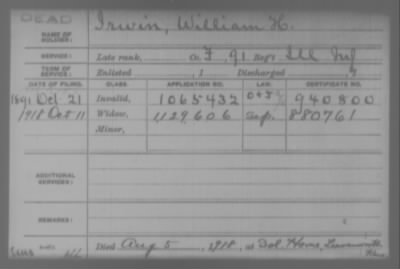 DEAD
NAME OF SOLDIER: Irwin, William H.
SERVICE: Late rank, Co. F, 91 Reg't Ill Inf
TERM OF SERVICE: Enlisted , 1 Discharged , 1
DATE OF FILING. CLASS. APPLICATION NO. LAW. CERTIFICATE NO.
1891 Oct 21 Invalid, 1065432 940800
1918 Oct 11 Widow, 1129606 Sep. 880761
Minor,
ADDITIONAL SERVICES:
REMARKS:
Died Aug 5, 1918, at Sol. Home, Leavenworth